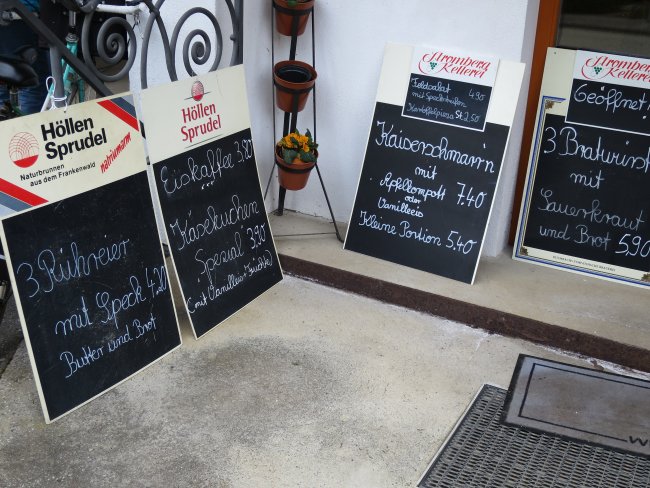 Höllen
Sprudel
Naturbrunnen
aus dem Frankenwald
naturnah
3 Rühreier
mit Speck 4,20
Butter und Brot
Höllen
Sprudel
Eiskaffee 3,90
Käsekuchen
Spezial 3,90
(mit Vanilleeis + Früchte)
Stromberg
Kellerei
Feldsalat 4.90
mit Speckstreifen
Kartoffelpizza St 2,50
Kaiserschmarr'n
mit 7.40
Apfelkompott
oder
Vanilleeis
Kleine Portion 5,40
Stromberg
Kellerei
Geöffnet
3 Bratwürste
mit
Sauerkraut
und Brot 5,90
W